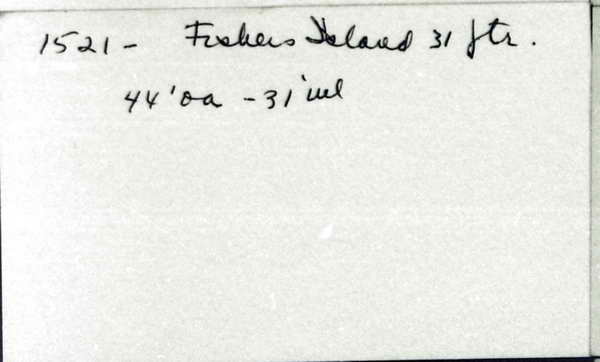 1521 - Fishers Island 31 ftr.
44' oa - 31' wl